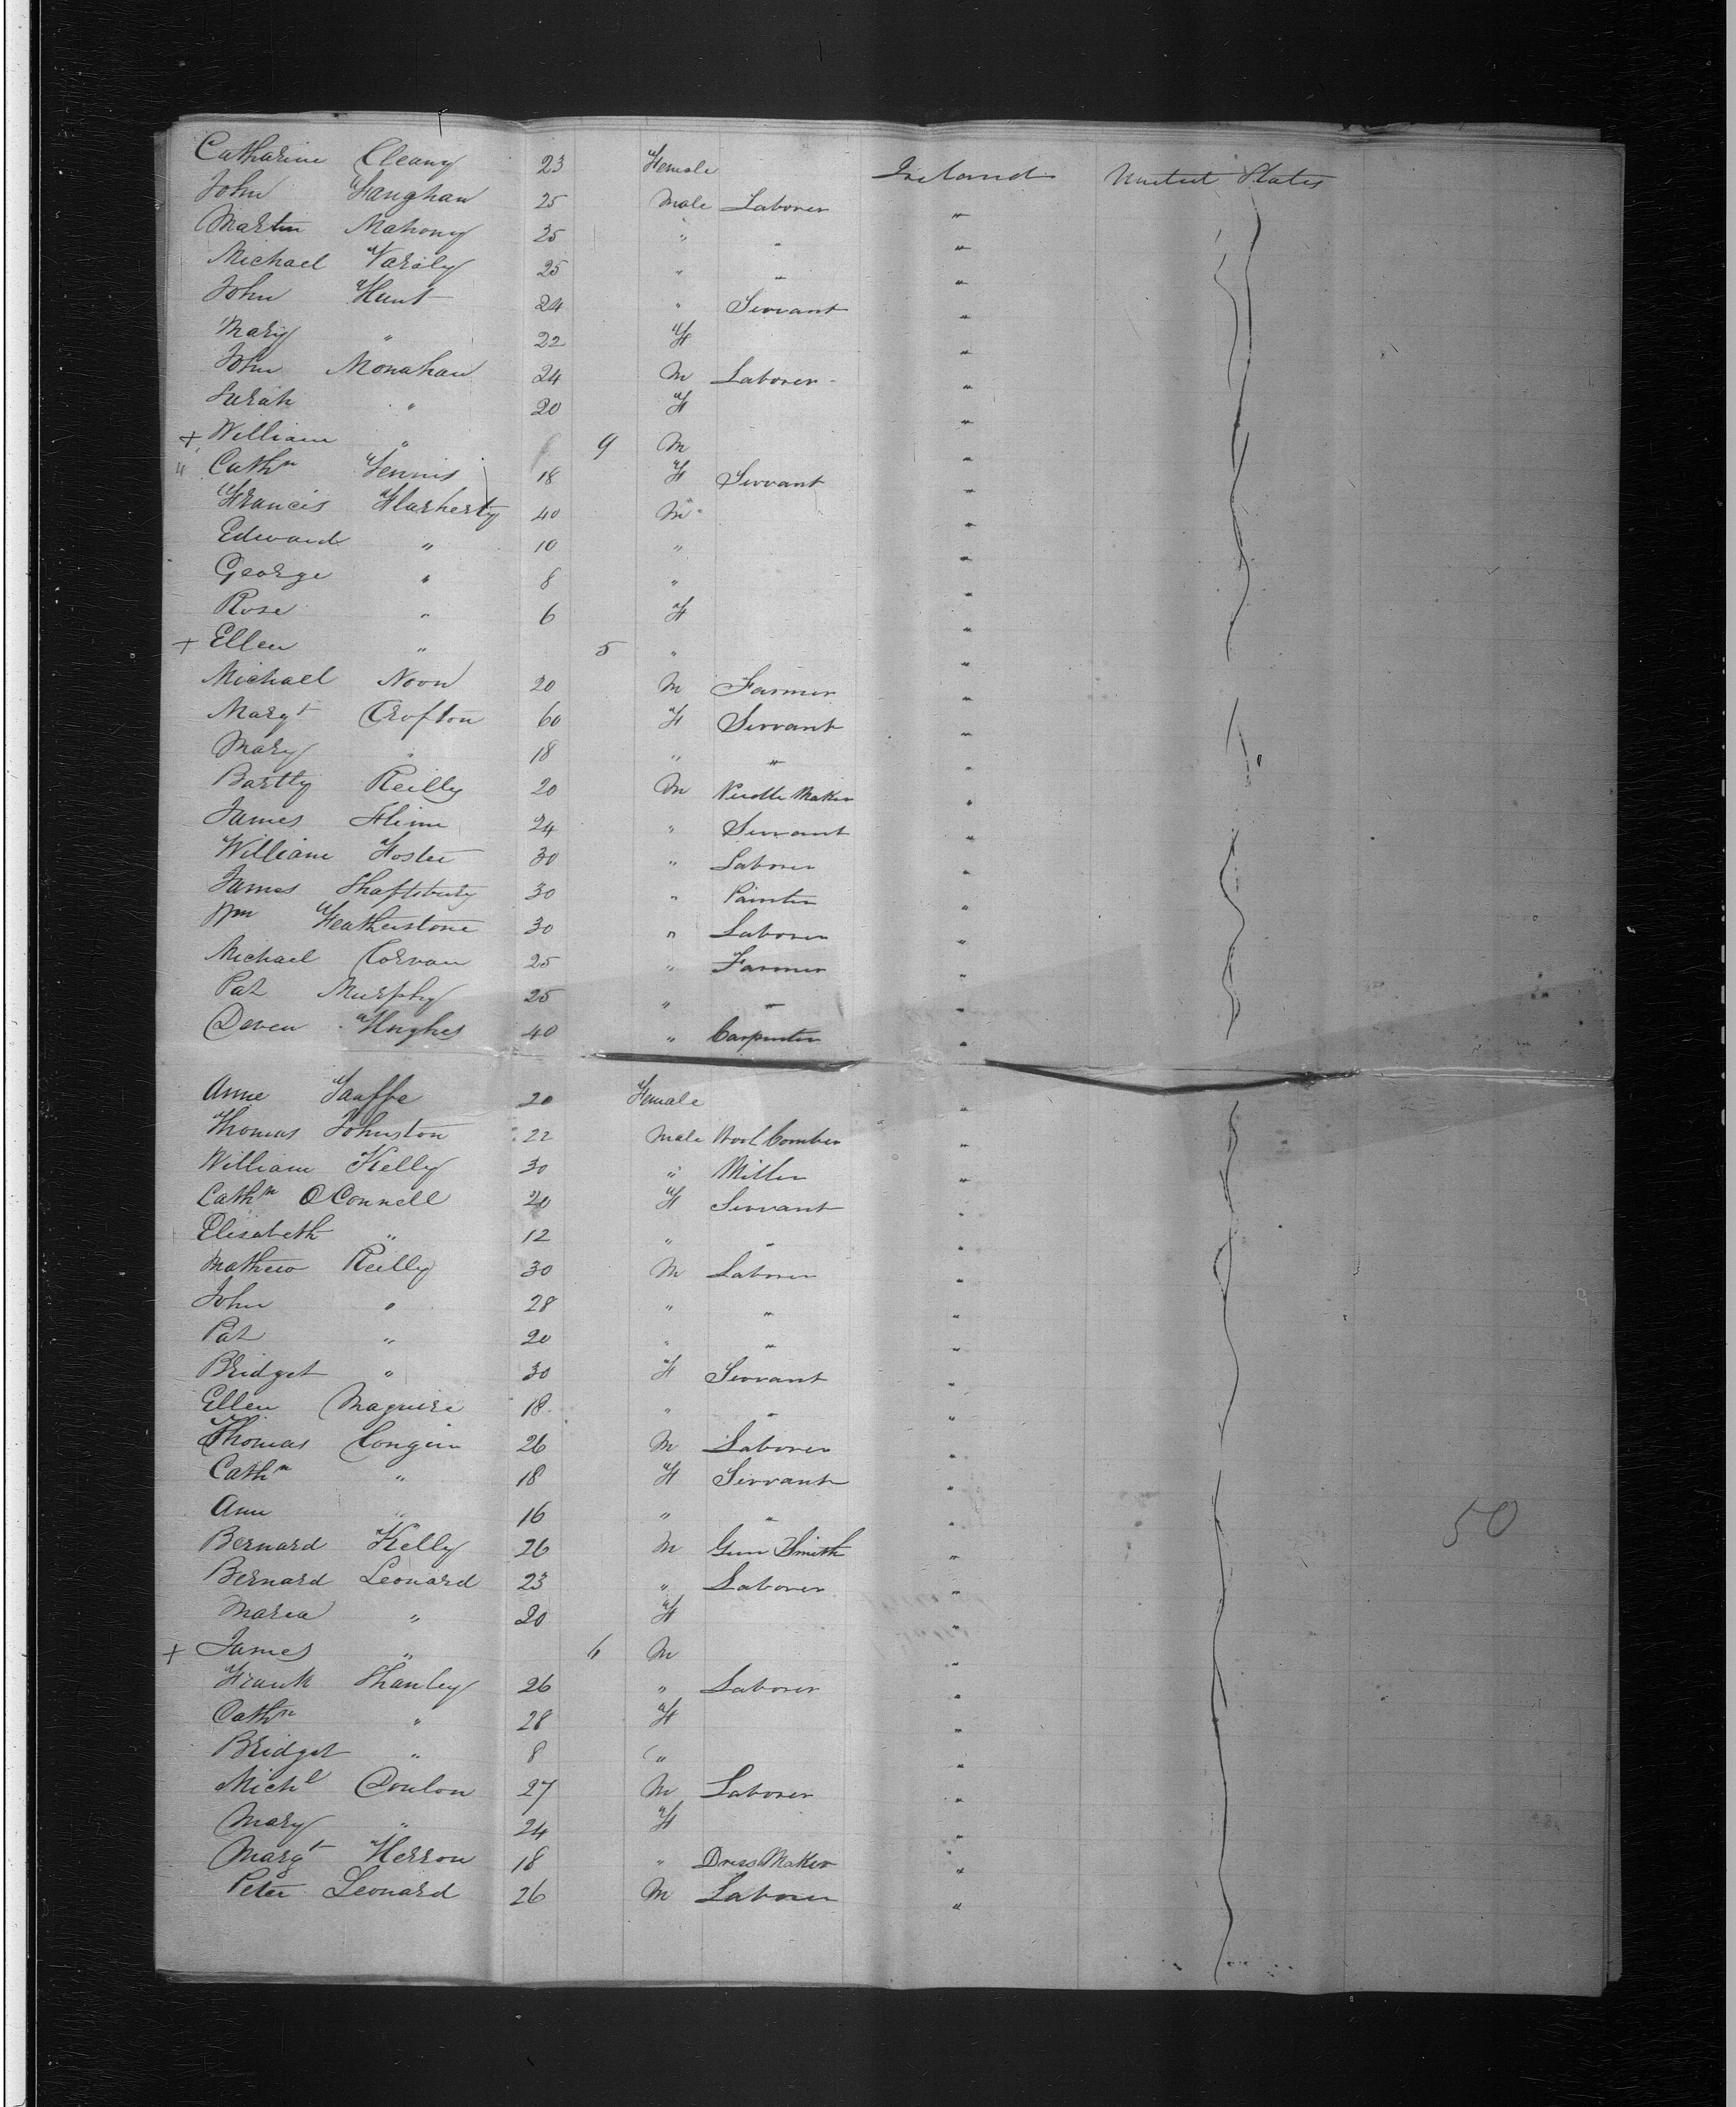 Catharine Cleary 23 Female Ireland United States
John Faughan 25 Male Laborer "
Martin Mahony 25 " " "
Michael Varily 25 " " "
John Hunt 24 " Servant "
Mary " 22 F "
John Monahan 24 M Laborer "
Sarah " 20 F "
+ William " 9 M "
" Cathn Fennis 18 F Servant "
Francis Flarherty 40 M "
Edward " 10 " "
George " 8 " "
Rose " 6 F "
+ Ellen " 5 " "
Michael Noon 20 M Farmer "
Margt Crofton 60 F Servant "
Mary " 18 " " "
Bartly Reilly 20 M Needle Maker "
James Flinn 24 " Servant "
William Foster 30 " Laborer "
James Shaftsbury 30 " Painter "
Wm Featherstone 30 " Laborer "
Michael Corvan 25 " Farmer "
Pat Murphy 25 " " "
Hughes 40 " Carpenter "
Anne 20 Female "
Thomas Johnston 22 Male Wool Comber "
William Kelly 30 " Miller "
Cathn O Connell 20 F Servant "
Elisabeth " 12 " " "
Mathew Reilly 30 M Laborer "
John " 28 " " "
Pat " 20 " " "
Bridget " 30 F Servant "
Ellen Maguire 18 " " "
Thomas 26 M Laborer "
Cathn " 18 F Servant "
Ann " 16 " " " 50
Bernard Kelly 26 M Gun Smith "
Bernard Leonard 23 " Laborer "
Maria " 20 F "
+ James " 6 M "
Frank Shanley 26 " Laborer "
Cathn " 28 F "
Bridget " 8 " "
Michl Conlon 27 M Laborer "
Mary " 24 F "
Margt Herron 18 " Dress Maker "
Peter Leonard 26 M Laborer "